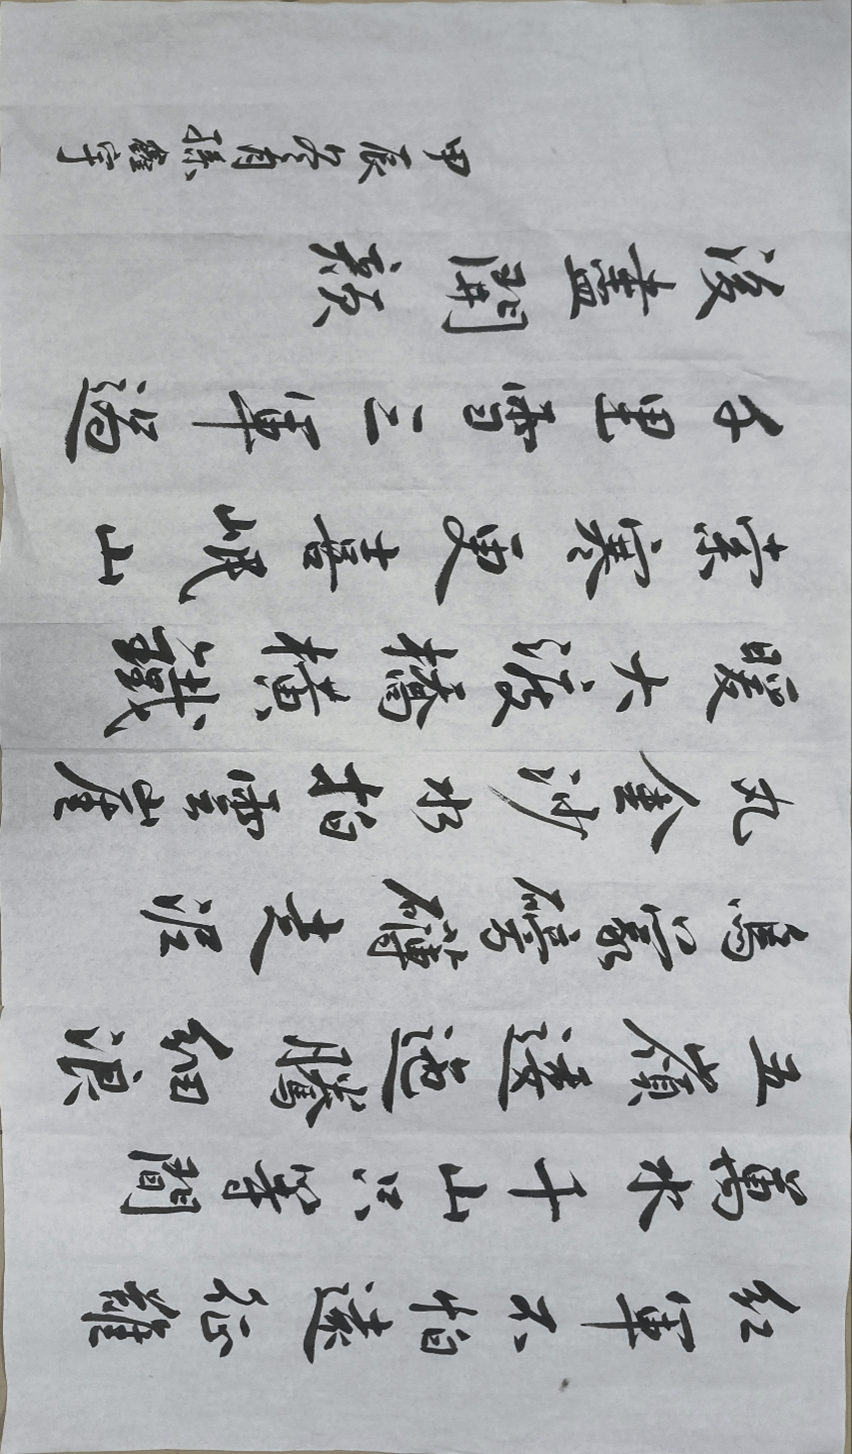 紅軍不怕遠征難
萬水千山只等間
五嶺逶迤騰細浪
烏蒙磅礴走泥
丸金沙水拍雲崖
暖大渡橋橫鐵
索寒更喜岷山
千里雪三軍過
後盡開顏
甲辰冬孫鑫宇